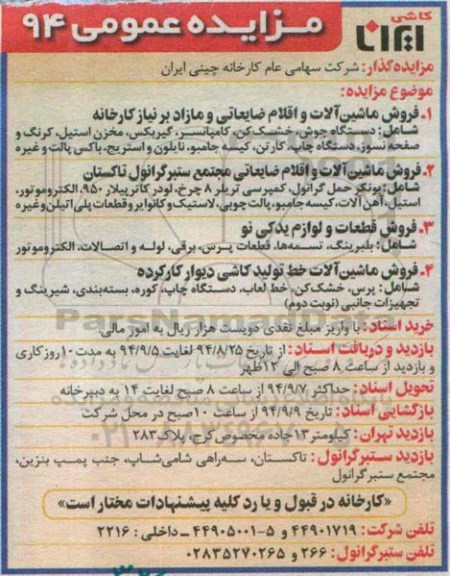 کاشی
ایرانا
مزایده عمومی ۹۴
مزایده‌گذار: شرکت سهامی عام کارخانه چینی ایران
موضوع مزایده:
۱ـ فروش ماشین‌آلات و اقلام ضایعاتی و مازاد بر نیاز کارخانه
شامل: دستگاه جوش، خشک‌کن، کامپانسر، گیربکس، مخزن استیل، کرنگ و
صفحه نسوز، دستگاه چاپ، کارتن، کیسه جامبو، نایلون و استریچ، باکس پالت و غیره
۲ـ فروش ماشین‌آلات و اقلام ضایعاتی مجتمع ستبرگرانول تاکستان
شامل: بونکر حمل گرانول، کمپرسی تریلر ۸ چرخ، لودر کاترپیلار ۹۵۰، الکتروموتور،
استیل، آهن آلات، کیسه جامبو، پالت چوبی، لاستیک و کانوایر و قطعات پلی اتیلن و غیره
۳ـ فروش قطعات و لوازم یدکی نو
شامل: بلبرینگ، تسمه‌ها، قطعات پرس، برقی، لوله و اتصالات، الکتروموتور
۴ـ فروش ماشین‌آلات خط تولید کاشی دیوار کارکرده
شامل: پرس، خشک‌کن، خط لعاب، دستگاه چاپ، کوره، بسته‌بندی، شیرینگ و
تجهیزات جانبی (نوبت دوم)
خرید اسناد: با واریز مبلغ نقدی دویست هزار ریال به امور مالی.
بازدید و دریافت اسناد: از تاریخ ۹۴/۸/۲۵ لغایت ۹۴/۹/۵ به مدت ۱۰ روز کاری
و بازدید از ساعت ۸ صبح الی ۱۲ ظهر
تحویل اسناد: حداکثر ۹۴/۹/۷ از ساعت ۸ صبح لغایت ۱۴ به دبیرخانه
بازگشایی اسناد: تاریخ ۹۴/۹/۹ از ساعت ۱۰ صبح در محل شرکت
بازدید تهران: کیلومتر ۱۳ جاده مخصوص کرج، پلاک ۲۸۳
بازدید ستبرگرانول: تاکستان، سه‌راهی شامی‌شاپ، جنب پمپ بنزین،
مجتمع ستبر گرانول
«کارخانه در قبول و یا رد کلیه پیشنهادات مختار است»
تلفن شرکت: ۴۴۹۰۱۷۱۹ و ۵-۴۴۹۰۵۰۰۱ ـ داخلی: ۲۲۱۶
تلفن ستبرگرانول: ۲۶۶ و ۰۲۸۳۵۲۷۰۲۶۵